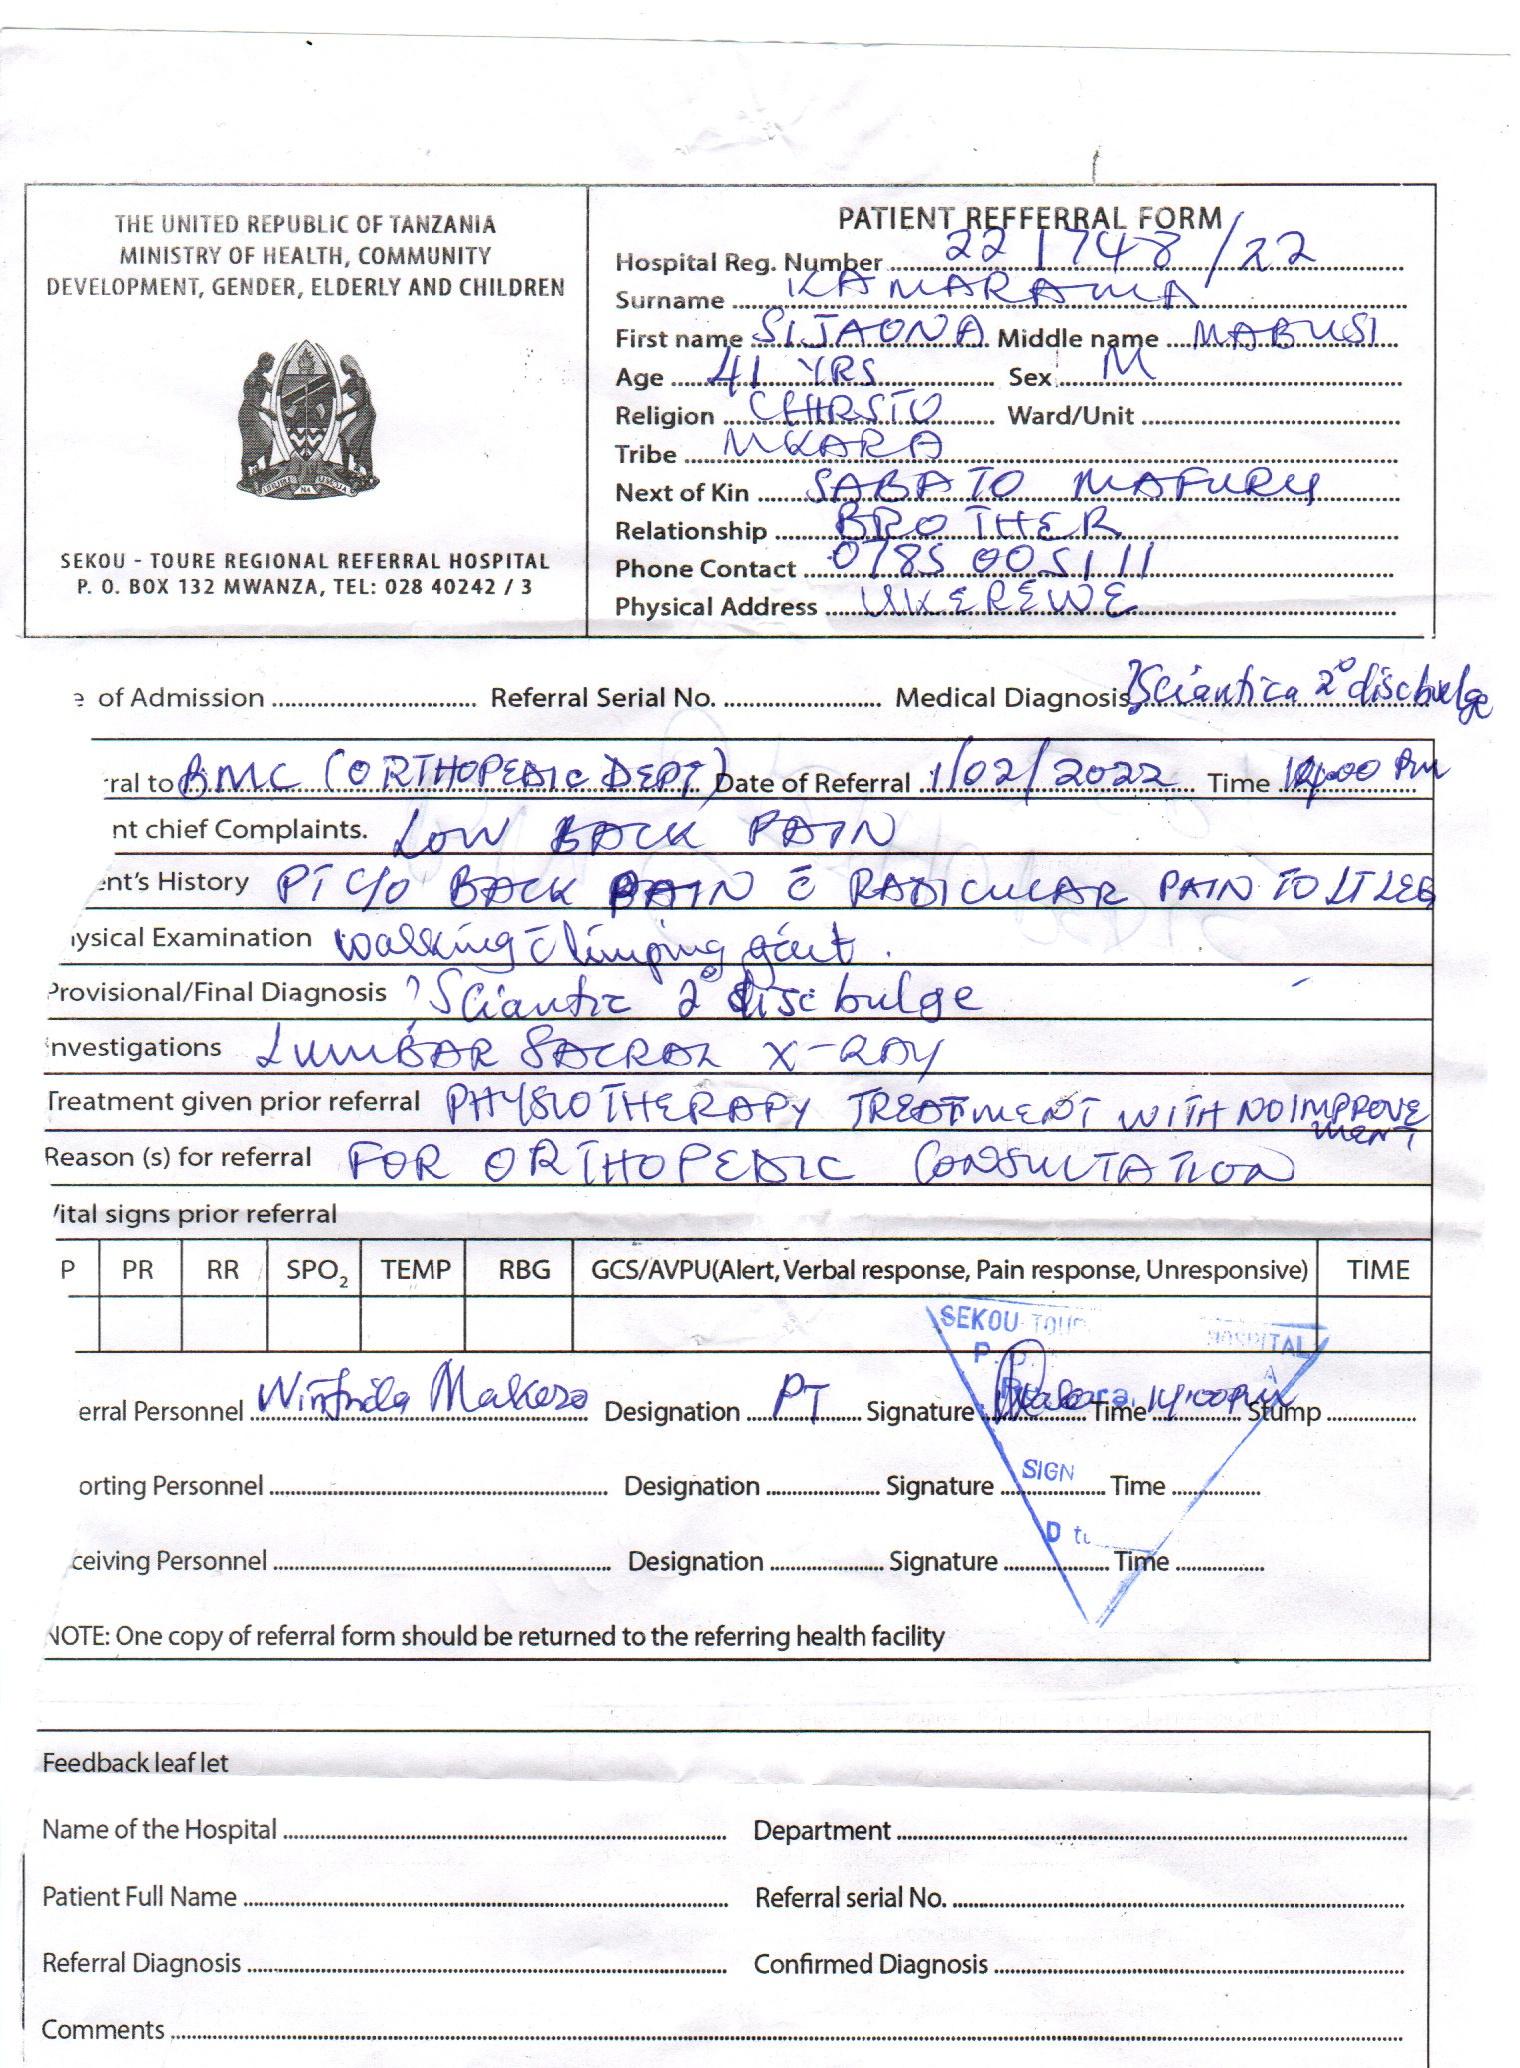 THE UNITED REPUBLIC OF TANZANIA
MINISTRY OF HEALTH, COMMUNITY
DEVELOPMENT, GENDER, ELDERLY AND CHILDREN
SEKOU - TOURE REGIONAL REFERRAL HOSPITAL
P. O. BOX 132 MWANZA, TEL: 028 40242 / 3
PATIENT REFFERRAL FORM
Hospital Reg. Number 221748/22
Surname KAMARAMA
First name SIJAONA Middle name MABUSI
Age 41 YRS Sex M
Religion CHRSTO Ward/Unit
Tribe MKARA
Next of Kin SABATO MAFURU
Relationship BROTHER
Phone Contact 0785 005111
Physical Address UKEREWE
e of Admission Referral Serial No. Medical Diagnosis ?Sciantica 2° disc bulge
ral to BMC (ORTHOPEDIC DEPT) Date of Referral 1/02/2022 Time PM
nt chief Complaints. LOW BACK PAIN
ent's History PT C/O BACK PAIN c̄ RADICULAR PAIN TO LT LEG
ysical Examination walking c̄ limping gait.
Provisional/Final Diagnosis ?Sciantic 2° disc bulge
nvestigations LUMBAR SACRAL X-RAY
Treatment given prior referral PHYSIOTHERAPY TREATMENT WITH NO IMPROVE
MENT
Reason (s) for referral FOR ORTHOPEDIC CONSULTATION
Vital signs prior referral
P PR RR SPO₂ TEMP RBG GCS/AVPU(Alert, Verbal response, Pain response, Unresponsive) TIME
SEKOU-TOUR HOSPITAL
erral Personnel Designation PT Signature Time 14:00PM Stump
SIGN
orting Personnel Designation Signature Time
ceiving Personnel Designation Signature Time
NOTE: One copy of referral form should be returned to the referring health facility
Feedback leaf let
Name of the Hospital Department
Patient Full Name Referral serial No.
Referral Diagnosis Confirmed Diagnosis
Comments